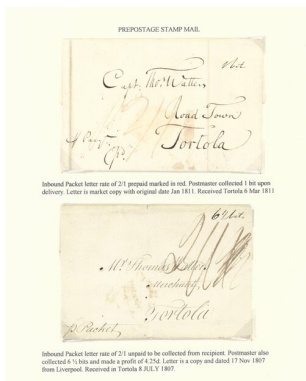 PREPOSTAGE STAMP MAIL
1 bit
Capt. Thos. Watters
Road Town
Tortola
Inbound Packet letter rate of 2/1 prepaid marked in red. Postmaster collected 1 bit upon
delivery. Letter is market copy with original date Jan 1811. Received Tortola 6 Mar 1811
6½ bit.
Mr. Thomas
Merchant,
Tortola
p Packet,
Inbound Packet letter rate of 2/1 unpaid to be collected from recipient. Postmaster also
collected 6 ½ bits and made a profit of 4.25d. Letter is a copy and dated 17 Nov 1807
from Liverpool. Received in Tortola 8 JULY 1807.